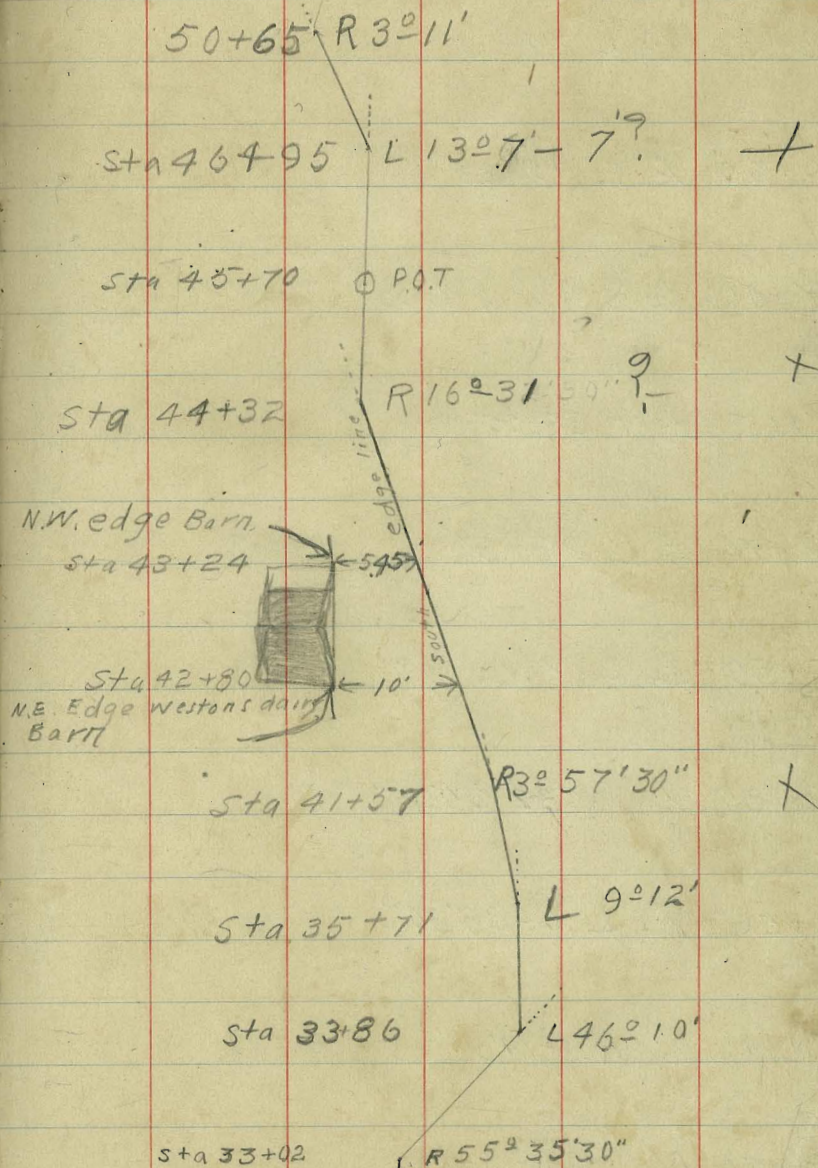 50+65 R 3º11'
Sta 46+95 L 13º7' - 7'?
Sta 45+70 P.O.T
Sta 44+32 R 16º-31' 30" ?
edge line
N.W. edge Barn
Sta 43+24
south
Sta 42+80 10'
N.E. Edge Westons dairy
Barn
Sta 41+57 R 3º 57'30"
Sta 35+71 L 9º12'
Sta 33+86 L 46º10'
Sta 33+02 R 55º35'30"